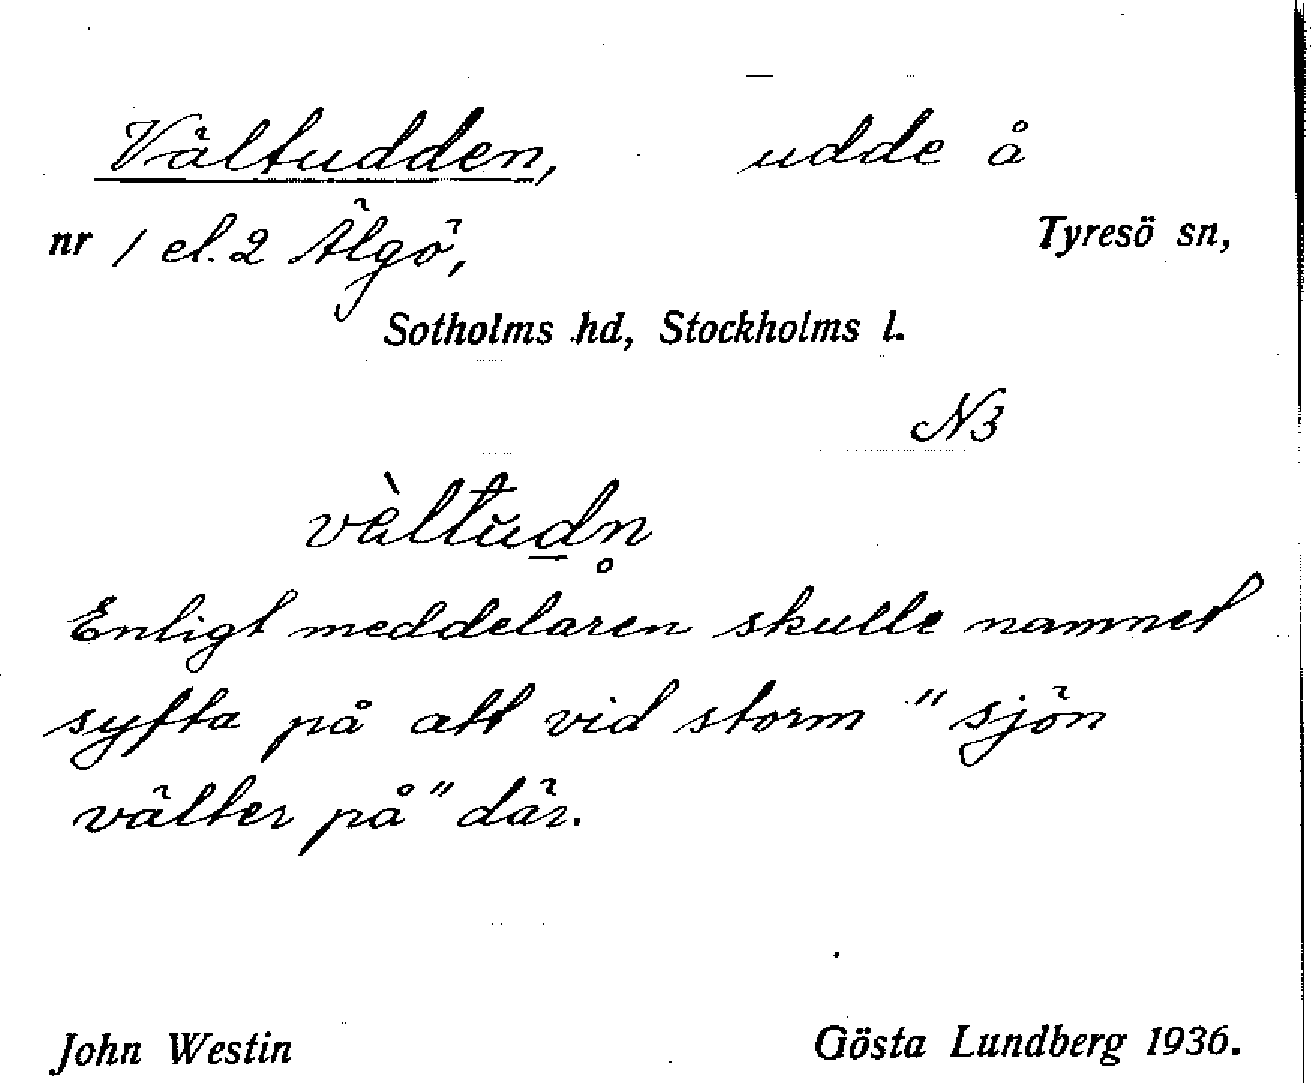 Vältudden, udde å
nr 1 el. 2 Älgö, Tyresö sn,
Sotholms hd, Stockholms l.
N3
vὲltŭd̲n̥
Enligt meddelaren skulle namnet
syfta på att vid storm "sjön
välter på" där.
John Westin Gösta Lundberg 1936.